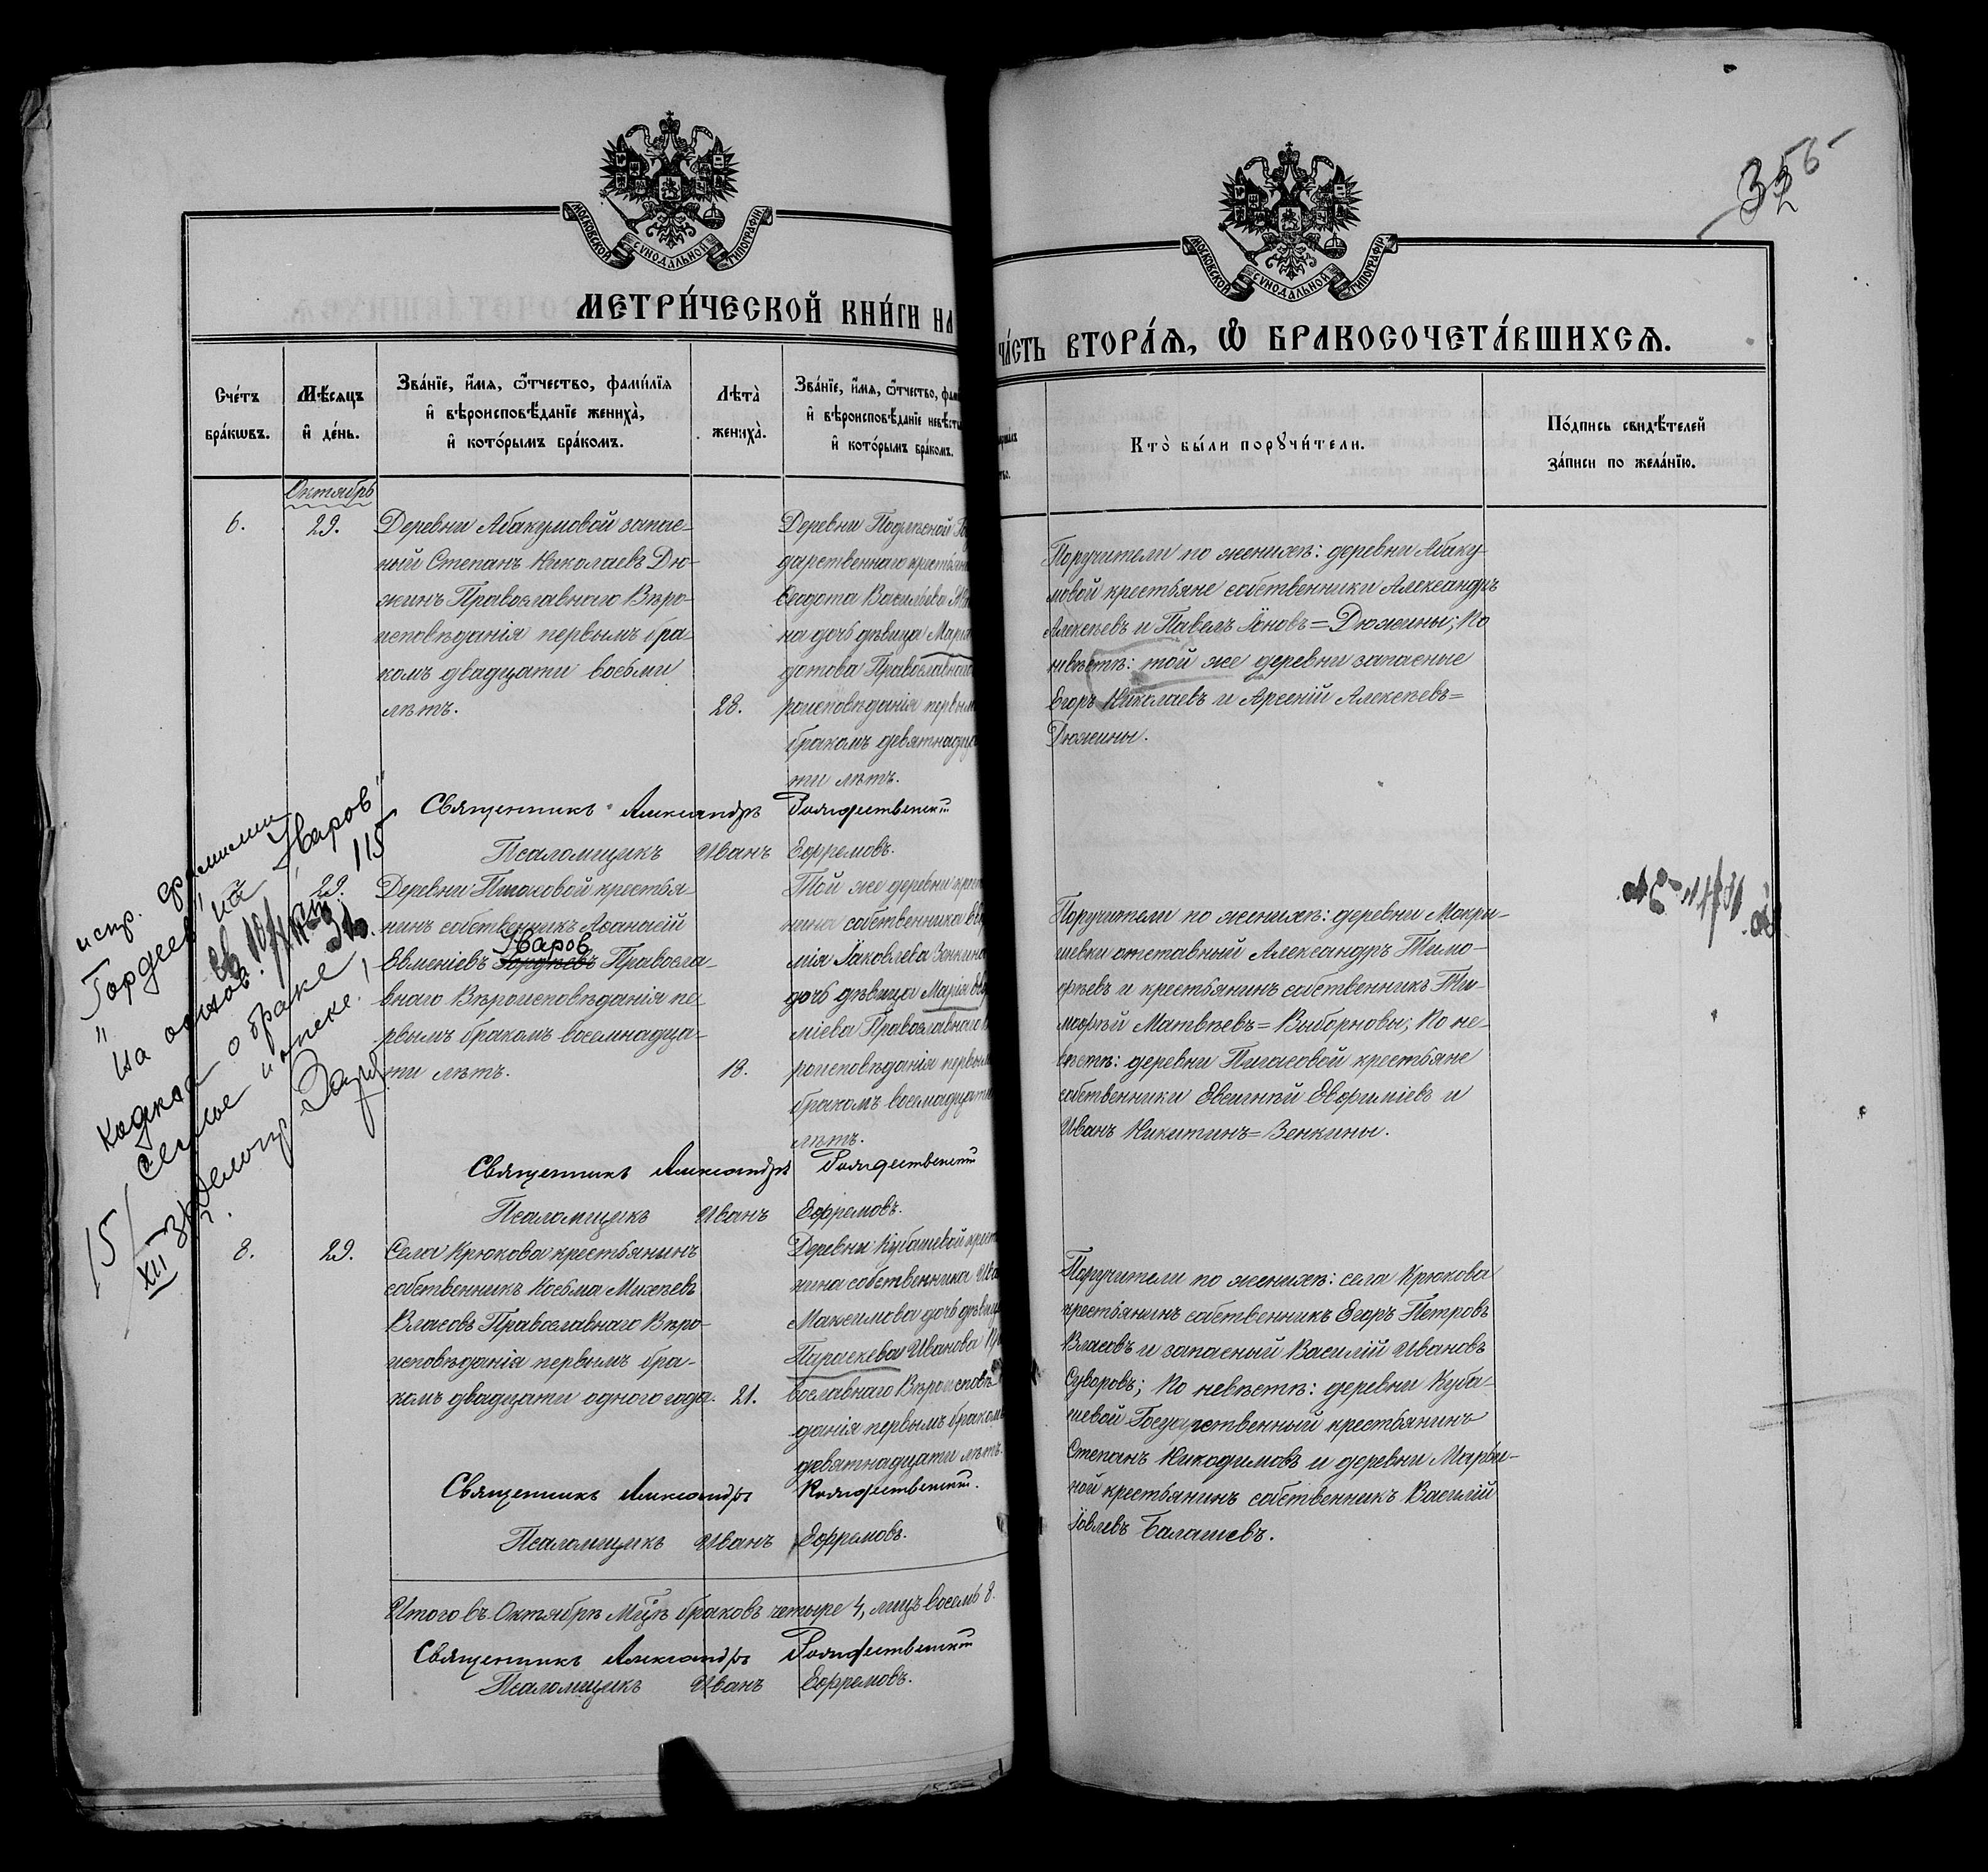 МОСКОВСКОЙ СѴНОДАЛЬНОЙ ТИПОГРАФІИ
МЕТРИ́ЧЕСКОЙ КНИ́ГИ НА
Сче́тъ бра́кѡвъ.
Мѣ́сяцъ и҆ де́нь.
Зва́нїе, и҆́мя, ѻ҆́тчество, фами́лїя и҆ вѣроисповѣ́данїе жениха̀, и҆ кото́рымъ бра́комъ.
Лѣта̀ жениха̀.
Зва́нїе, и҆́мя, ѻ҆́тчество, фами
и҆ вѣроисповѣ́данїе невѣ́сты
и҆ кото́рымъ бра́комъ.
Октябрь
6.
29.
Деревни Абакумовой запас-
ный Степанъ Николаевъ Дю-
жинъ Православнаго Вѣро-
исповѣданія первымъ бра-
комъ двадцати восьми
лѣтъ.
28.
Деревни Подлѣсной
дарственнаго крестьян
Ѳеодота Васильева
на дочь дѣвица Марія
дотова Православнаго
роисповѣданія первым
бракомъ девятнадца
ти лѣтъ.
Священникъ Александръ Рождественскій
Псаломщикъ Иванъ Ефремовъ.
29.
Деревни Пигасовой крестья-
нинъ собственникъ Аѳанасій
Уваров
Евменіевъ Гордѣевъ Правосла-
внаго Вѣроисповѣданія пе-
рвымъ бракомъ восемнадца-
ти лѣтъ.
18.
Той же деревни крест
нина собственника
мія Іаковлева Зенкина
дочь дѣвица Марія
міева Православнаго
роисповѣданія первым
бракомъ восемнадцати
лѣтъ.
Священникъ Александръ Рождественскій
Псаломщикъ Иванъ Ефремовъ.
испр. фамилии
"Гордеев" на "Уваров"
на основ. 115
кодекса о браке
семье и опеке!
15/XII
8.
29.
Села Крюкова крестьянинъ
собственникъ Косьма Михѣевъ
Власовъ Православнаго Вѣро-
исповѣданія первымъ бра-
комъ двадцати одного года.
21.
Деревни Кубашевой крест
нина собственника Ива
Максимова дочь дѣвица
Параскева Иванова Пра
вославнаго Вѣроисповѣ
данія первымъ бракомъ
девятнадцати лѣтъ.
Священникъ Александръ Рождественскій.
Псаломщикъ Иванъ Ефремовъ.
Итого въ Октябрѣ Мцѣ браковъ четыре 4, лицъ восемь 8.
Священникъ Александръ Рождественскій
Псаломщикъ Иванъ Ефремовъ.
МОСКОВСКОЙ СѴНОДАЛЬНОЙ ТИПОГРАФІИ
ЧА́СТЬ ВТОРА́Я, Ѡ҆ БРАКОСОЧЕТА́ВШИХСЯ.
Кто̀ бы́ли порꙋчи́тели.
По́дпись свидѣ́телей за́писи по жела́нїю.
Поручители по женихѣ: деревни Абаку-
мовой крестьяне собственники Александръ
Алексѣевъ и Павелъ Іоновъ = Дюжины; По
невѣстѣ: той же деревни запасные
Егоръ Николаевъ и Арсеній Алексѣевъ =
Дюжины.
Поручители по женихѣ: деревни Мокри-
шевки отставный Александръ Тимо-
ѳѣевъ и крестьянинъ собственникъ Ти-
моѳей Матвѣевъ = Выборновы; По не-
вѣстѣ: деревни Пигасовой крестьяне
собственники Евсигнѣй Евѳиміевъ и
Иванъ Никитинъ = Зенкины.
Поручители по женихѣ: села Крюкова
крестьянинъ собственникъ Егоръ Петровъ
Власовъ и запасный Василій Ивановъ
Суворовъ; По невѣстѣ: деревни Куба-
шевой Государственный крестьянинъ
Степанъ Никодимовъ и деревни Марьи-
ной крестьянинъ собственникъ Василій
Іовлевъ Балашевъ.